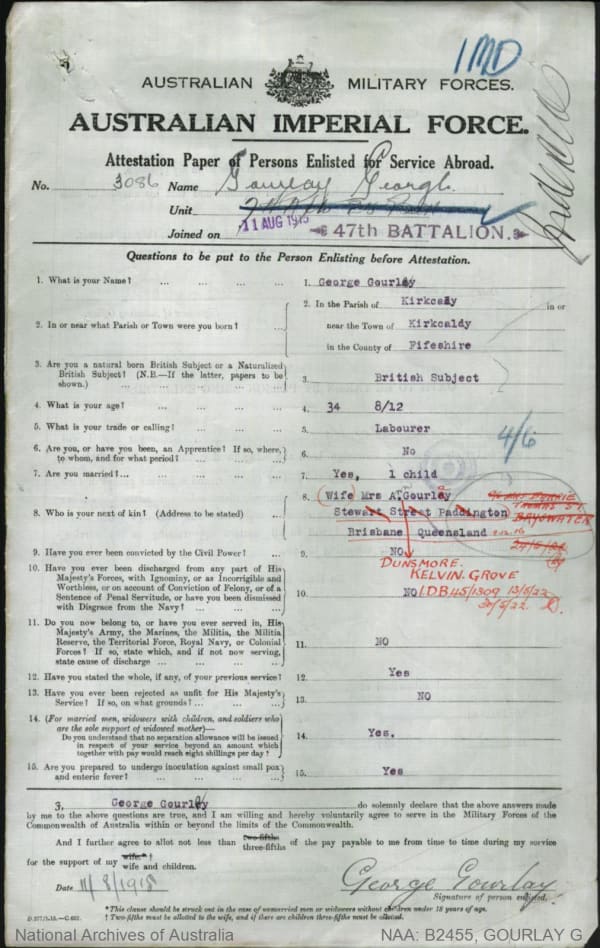 1MD
AUSTRALIAN MILITARY FORCES.
AUSTRALIAN IMPERIAL FORCE.
Attestation Paper of Persons Enlisted for Service Abroad.
No. 3086 Name Gourlay George
Unit
Joined on 11 AUG 1915 47th BATTALION.
Questions to be put to the Person Enlisting before Attestation.
1. What is your Name? ... ... ... ... 1. George Gourlay
2. In or near what Parish or Town were you born? ... 2. In the Parish of Kirkcaldy in or
near the Town of Kirkcaldy
in the County of Fifeshire
3. Are you a natural born British Subject or a Naturalized
British Subject? (N.B.—If the latter, papers to be
shown.) ... ... ... ... 3. British Subject
4. What is your age? ... ... ... ... 4. 34 8/12
5. What is your trade or calling? ... ... ... 5. Labourer
4/6
6. Are you, or have you been, an Apprentice? If so, where,
to whom, and for what period? ... ... ... 6. No
7. Are you married?... ... ... ... 7. Yes, 1 child
8. Who is your next of kin? (Address to be stated) ... 8. Wife Mrs A. Gourlay
Stewart Street Paddington
Brisbane Queensland
THOMAS ST.
BAYSWATER
DUNSMORE.
KELVIN. GROVE
I.DB 45/1309 13/5/22
9. Have you ever been convicted by the Civil Power? ... 9. NO
10. Have you ever been discharged from any part of His
Majesty's Forces, with Ignominy, or as Incorrigible and
Worthless, or on account of Conviction of Felony, or of a
Sentence of Penal Servitude, or have you been dismissed
with Disgrace from the Navy? ... ... ... 10. NO
11. Do you now belong to, or have you ever served in, His
Majesty's Army, the Marines, the Militia, the Militia
Reserve, the Territorial Force, Royal Navy, or Colonial
Forces? If so, state which, and if not now serving,
state cause of discharge ... ... ... ... 11. NO
12. Have you stated the whole, if any, of your previous service? 12. Yes
13. Have you ever been rejected as unfit for His Majesty's
Service? If so, on what grounds? ... ... ... 13. NO
14. (For married men, widowers with children, and soldiers who
are the sole support of widowed mother)—
Do you understand that no separation allowance will be issued
in respect of your service beyond an amount which
together with pay would reach eight shillings per day? 14. Yes.
15. Are you prepared to undergo inoculation against small pox
and enteric fever? ... ... ... ... 15. Yes
3, George Gourlay do solemnly declare that the above answers made
by me to the above questions are true, and I am willing and hereby voluntarily agree to serve in the Military Forces of the
Commonwealth of Australia within or beyond the limits of the Commonwealth.
And I further agree to allot not less than two-fifths three-fifths of the pay payable to me from time to time during my service
for the support of my wife.*† wife and children.
Date 11/8/1915 George Gourlay
Signature of person enlisted.
D.377/1.15.—C.602. *This clause should be struck out in the case of unmarried men or widowers without children under 18 years of age.
† Two-fifths must be allotted to the wife, and if there are children three-fifths must be allotted.
National Archives of Australia NAA: B2455, GOURLAY G